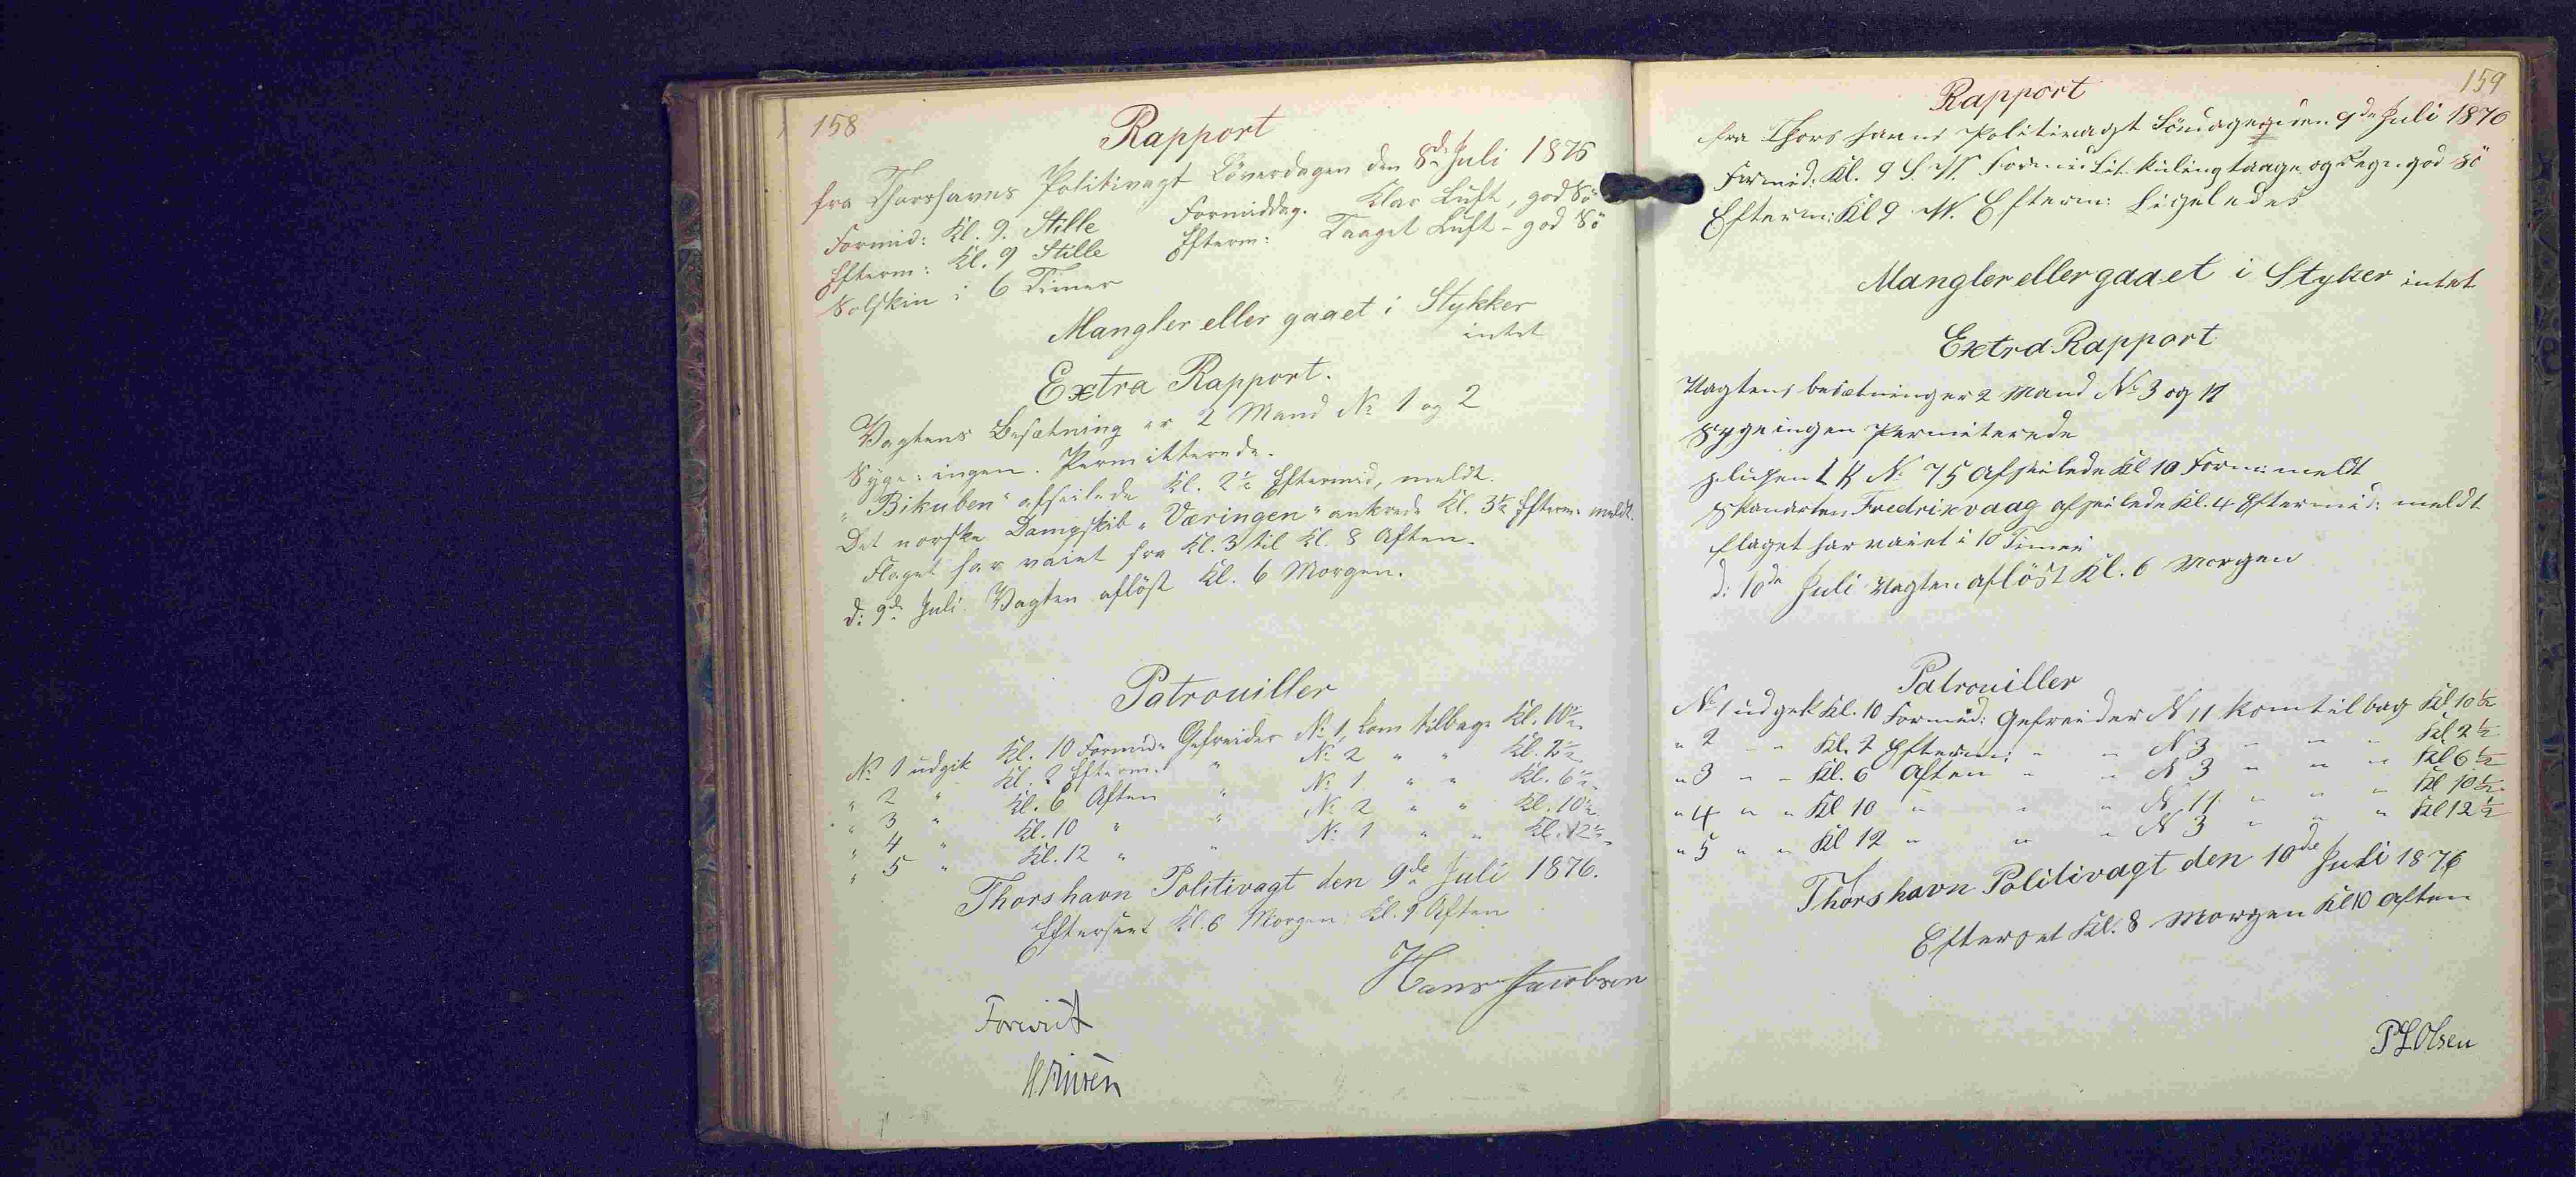 158
Rapport
fra Thorshavns Politivagt Löverdagen den 8de Juli 1876
Formid: Kl. 9. Stille Formiddag. Klar Luft, god Sö
Efterm: Kl. 9 Stille Efterm: Taaget Luft - god Sö
Solskin i 6 Timer
Mangler eller gaaet i Stykker
intet
Extra Rapport.
Vagtens Besætning er 2 Mand No 1 og 2
Syge: ingen. Permitterede.
"Bikuben" afseilede Kl. 2½ Eftermid, meldt.
Det norske Dampskib "Væringen" ankrede Kl. 3½ Efterm: meldt.
Flaget har vaiet fra Kl. 3 til Kl. 8 Aften.
d: 9de Juli. Vagten aflöst Kl. 6 Morgen.
Patrouiller
No 1 udgik Kl. 10 Formid: Gefreider No 1, kom tilbage Kl. 10½
" 2 " Kl. 2 Efterm. " No 2 " " Kl. 2½
" 3 " Kl. 6 Aften " No 1 " " Kl. 6½
" 4 " Kl. 10 " " No 2 " " Kl. 10½
" 5 " Kl. 12 " " No 1 " " Kl. 12½
Thorshavn Politivagt den 9de Juli 1876.
Efterseet Kl. 6 Morgen Kl. 9 Aften
Hans Jacobsen
Forevist
H. Finsen
159
Rapport
fra Thorshavns Politivagt Söndagen den 9de Juli 1876
Formid: Kl. 9 S. W. Formid Lit. Kuling taage og Regn god sö
Efterm: Kl 9 W. Efterm: Ligeledes
Mangler eller gaaet i Styker intet
Extra Rapport
Vagtens besætning er 2 Mand No 3 og 11
Syge ingen Permiterede
Slupen L K No 75 afseilede Kl 10 Form: meldt
Skonarten Fredrikvaag afseilede Kl. 4 Eftermid: meldt
Flaget har vaiet i 10 Timer
d: 10de Juli Vagten aflöst Kl. 6 Morgen
Patrouiller
No 1 udgek Kl. 10 Formid: Gefreider N 11 kom tilbag Kl 10½
" 2 " " Kl. 2 Efterm: " " N 3 " " " Kl 2½
" 3 " " Kl. 6 Aften " " N 3 " " " Kl 6½
" 4 " " Kl 10 " " " N 11 " " " Kl 10½
" 5 " " Kl 12 " " " N 3 " " " Kl 12½
Thorshavn Politivagt den 10de Juli 1876
Efterset Kl. 8 Morgen Kl 10 aften
P L Olsen